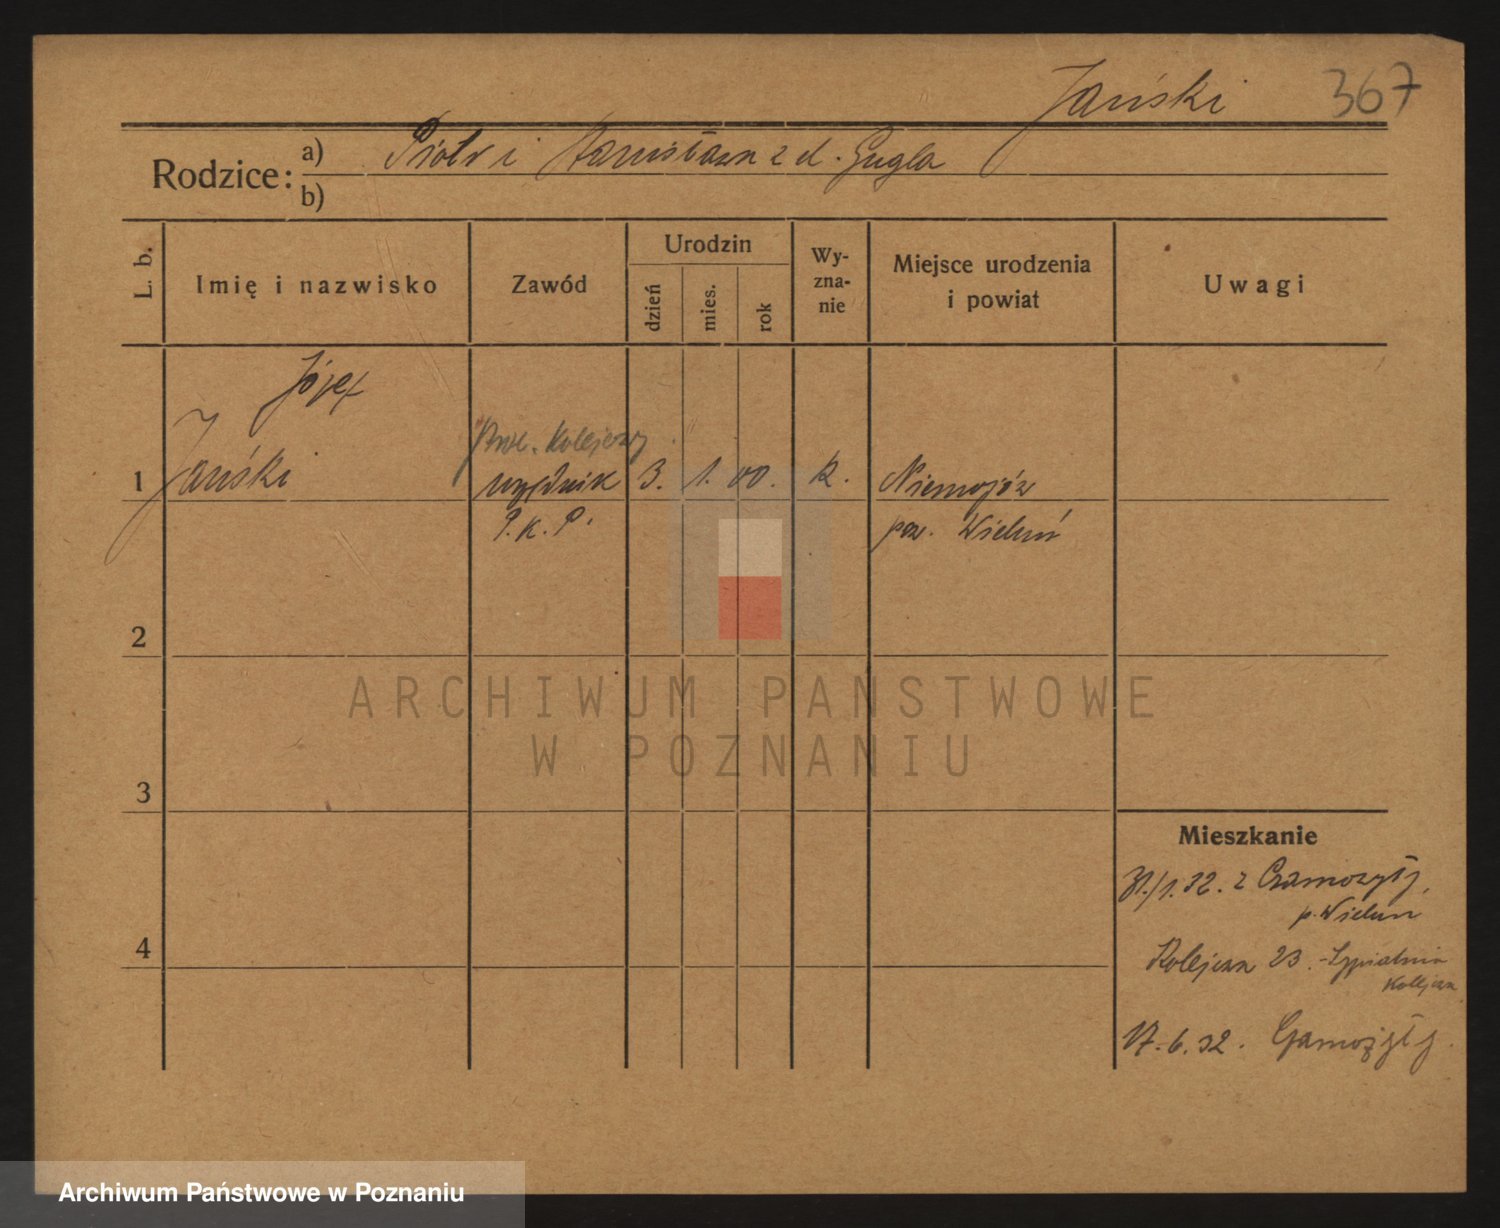 Jański 367
Rodzice: a) Piotr i Stanisława z d. Gugla
b)
L. b. Imię i nazwisko Zawód Urodzin dzień mies. rok Wy-zna-nie Miejsce urodzenia i powiat Uwagi
Józef
Kolejowy
1 Jański urzędnik 3. 1. 00. k. Niemojów
P.K.P. pow. Wieluń
2
ARCHIWUM PAŃSTWOWE
W POZNANIU
3
Mieszkanie
31./1.32. z Czarnożyły,
p. Wieluń
4
Kolejowa 23. - Sypialnia
Kolejowa
17.6.32. Czarnożyły
Archiwum Państwowe w Poznaniu